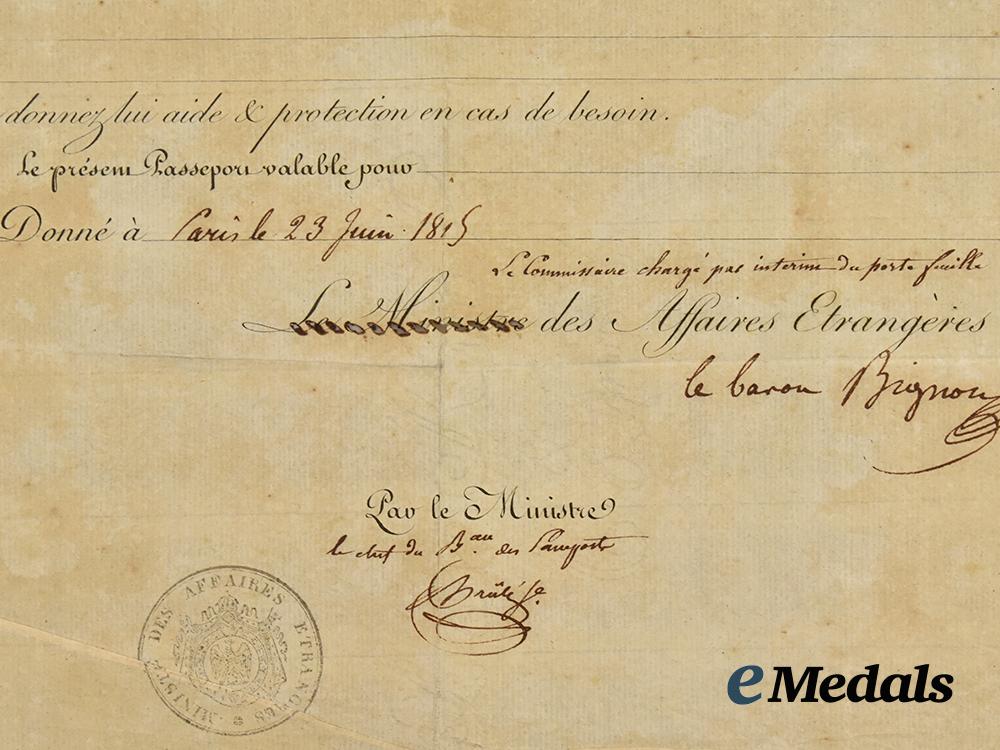 donnez lui aide & protection en cas de besoin.
Le présent Passeport valable pour
Donné à Paris le 23 Juin 1815
Le Commissaire chargé par interim du porte feuille
Le Ministre des Affaires Etrangères
le baron Bignon
Par le Ministre
le chef du B.au des Passeports
Brûlé
MINISTE DES AFFAIRES ETRANGERES
eMedals